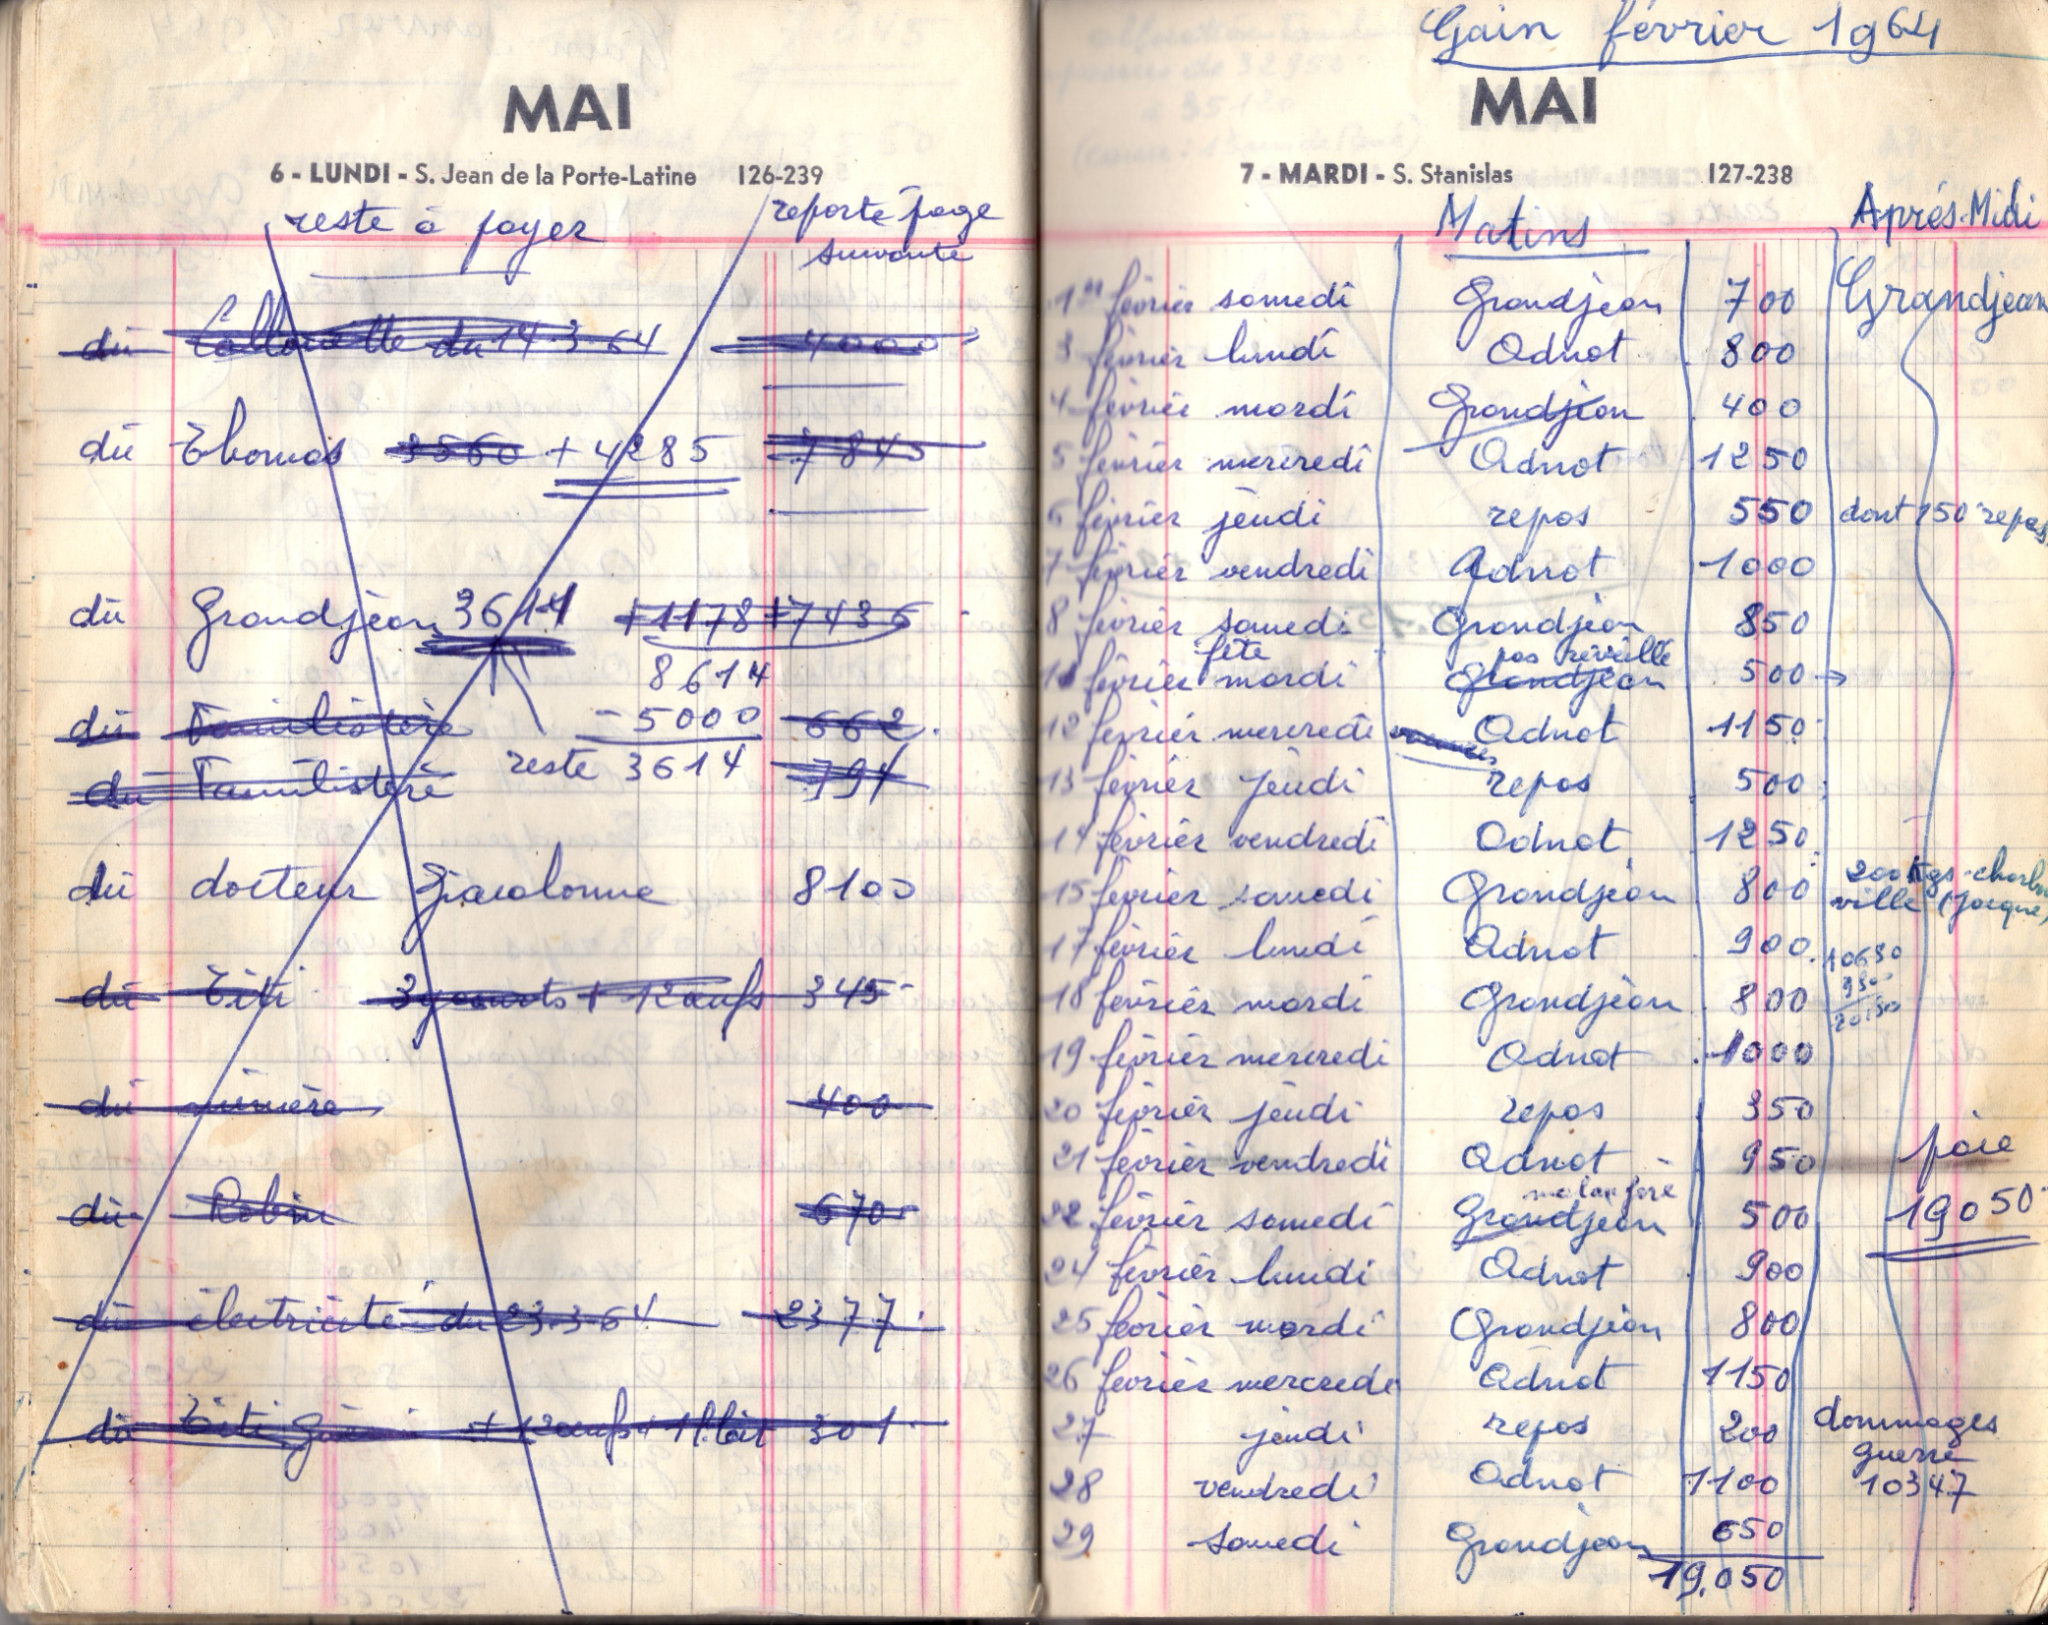 MAI
6 - LUNDI - S. Jean de la Porte-Latine 126-239
reste à payer reporté page
suivante
dû du 14 3 64 4000
dû Thomas 3560 + 4285 7845
dû Grandjean 3614 +1178 +7436
8614
dû Familistère - 5000 662
reste 3614
dû Familistère 794
dû docteur Giacolonne 8100
dû Titi 3 yaourts + 12 œufs 345
dû 400
dû Robin 670
dû électricité du 23.3 64 2377
dû Titi + 12 œufs + 1 l. lait 301
Gain février 1964
MAI
7 - MARDI - S. Stanislas 127-238
Matins Après-Midi
1er février samedi Grandjean 700 Grandjean
3 février lundi Adnot 800
4 février mardi Grandjean 400
5 février mercredi Adnot 1250
6 février jeudi repos 550 dont 150 repas
7 février vendredi Adnot 1000
8 février samedi Grandjean 850
fête pas réveillé
11 février mardi Grandjean 500 →
12 février mercredi Adnot 1150
13 février jeudi repos 500
14 février vendredi Adnot 1250
15 février samedi Grandjean 800 200 kgs charbon
ville (Jacque)
17 février lundi Adnot 900 10630
18 février mardi Grandjean 800 9500
20130
19 février mercredi Adnot 1000
20 février jeudi repos 350
21 février vendredi Adnot 950 paie
22 février samedi Grandjean 500 19050
24 février lundi Adnot 900
25 février mardi Grandjean 800
26 février mercredi Adnot 1150
27 jeudi repos 200 dommages
guerre
28 vendredi Adnot 1100 10347
29 samedi Grandjean 650
19.050